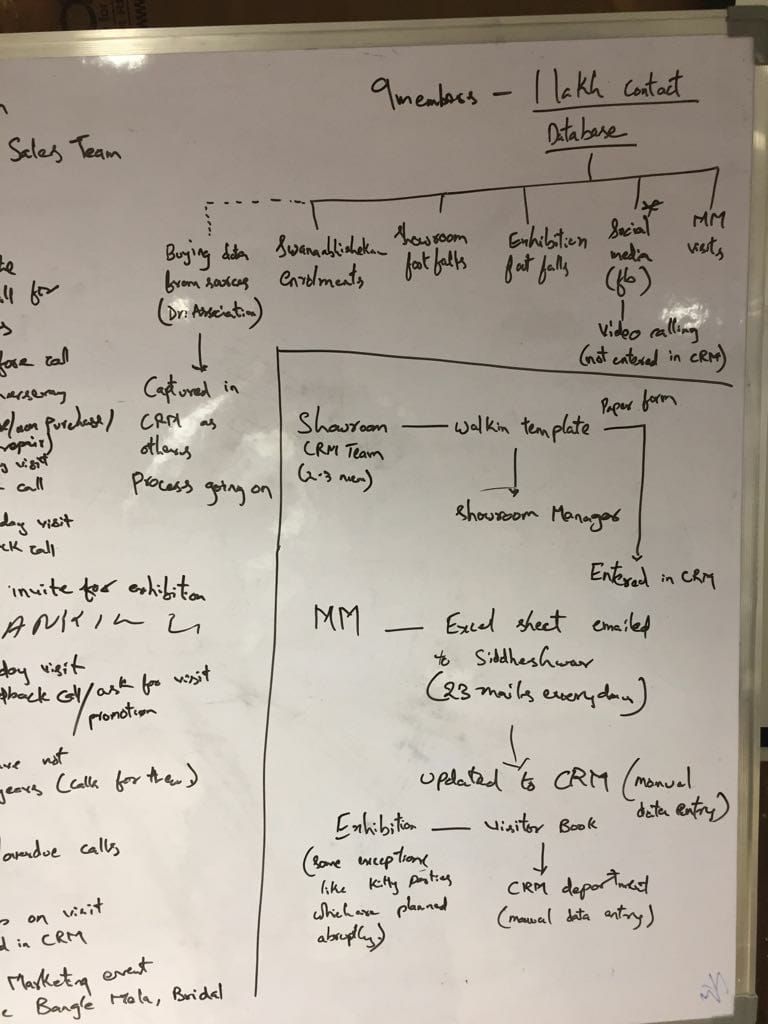 9 members - 1 lakh Contact
Database
Sales Team
Buying data
from sources
(Dr. Association)
Captured in
CRM as
others
Process going on
enrolments
Showroom
foot falls
Exhibition
foot falls
Social
media
(fb)
Video calling
(not entered in CRM)
MM
visits
call
purchase/
repair)
visit
call
day visit
call
invite for exhibition
day visit
call/ask for visit
promotion
not
years (calls for them)
overdue calls
on visit
in CRM
Marketing event
Bangle Mela, Bridal
Showroom — walkin template
CRM Team
(2-3 mem)
Paper form
Showroom Manager
Entered in CRM
MM — Excel sheet emailed
to Siddheshwar
(23 mails everyday)
updated to CRM (manual
data entry)
Exhibition — Visitor Book
(some exceptions
like kitty parties
which are planned
abruptly)
CRM department
(manual data entry)